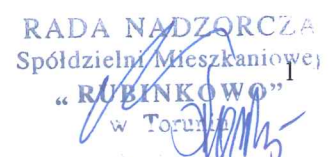 RADA NADZORCZA
Spółdzielni Mieszkaniowej
1
„RUBINKOWO”
w Toruniu